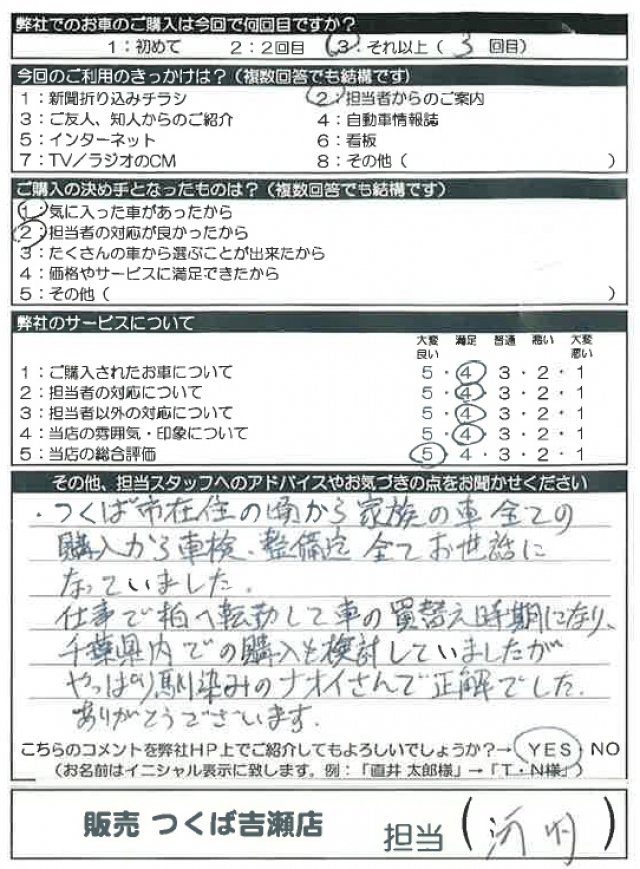 弊社でのお車のご購入は今回で何回目ですか？
1：初めて 2：2回目 3：それ以上（ 3 回目）
今回のご利用のきっかけは？（複数回答でも結構です）
1：新聞折り込みチラシ 2：担当者からのご案内
3：ご友人、知人からのご紹介 4：自動車情報誌
5：インターネット 6：看板
7：TV／ラジオのCM 8：その他（ ）
ご購入の決め手となったものは？（複数回答でも結構です）
1：気に入った車があったから
2：担当者の対応が良かったから
3：たくさんの車から選ぶことが出来たから
4：価格やサービスに満足できたから
5：その他（ ）
弊社のサービスについて
大変良い 満足 普通 悪い 大変悪い
1：ご購入されたお車について 5・4・3・2・1
2：担当者の対応について 5・4・3・2・1
3：担当者以外の対応について 5・4・3・2・1
4：当店の雰囲気・印象について 5・4・3・2・1
5：当店の総合評価 5・4・3・2・1
その他、担当スタッフへのアドバイスやお気づきの点をお聞かせください
・つくば市在住の頃から家族の車全ての
購入から車検、整備迄全てお世話に
なっていました。
仕事で柏へ転勤して車の買替え時期になり、
千葉県内での購入も検討していましたが
やっぱり馴染みのナオイさんで正解でした。
ありがとうございます。
こちらのコメントを弊社HP上でご紹介してもよろしいでしょうか？→ YES・NO
（お名前はイニシャル表示に致します。例：「直井 太郎様」→「T・N様」）
販売 つくば吉瀬店 担当（ ）